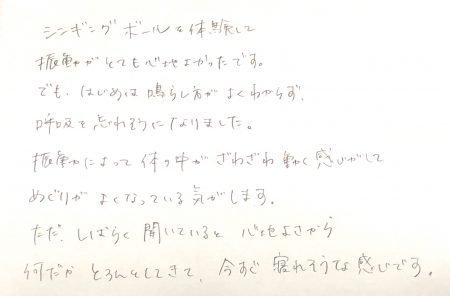 シンギングボールを体験して
振動がとても心地よかったです。
でも、はじめは鳴らし方がよくわからず、
呼吸を忘れそうになりました。
振動によって体の中がざわざわ動く感じがして
めぐりがよくなっている気がします。
ただ、しばらく聞いていると心地よさから
何だかとろんとしてきて、今すぐ寝れそうな感じです。